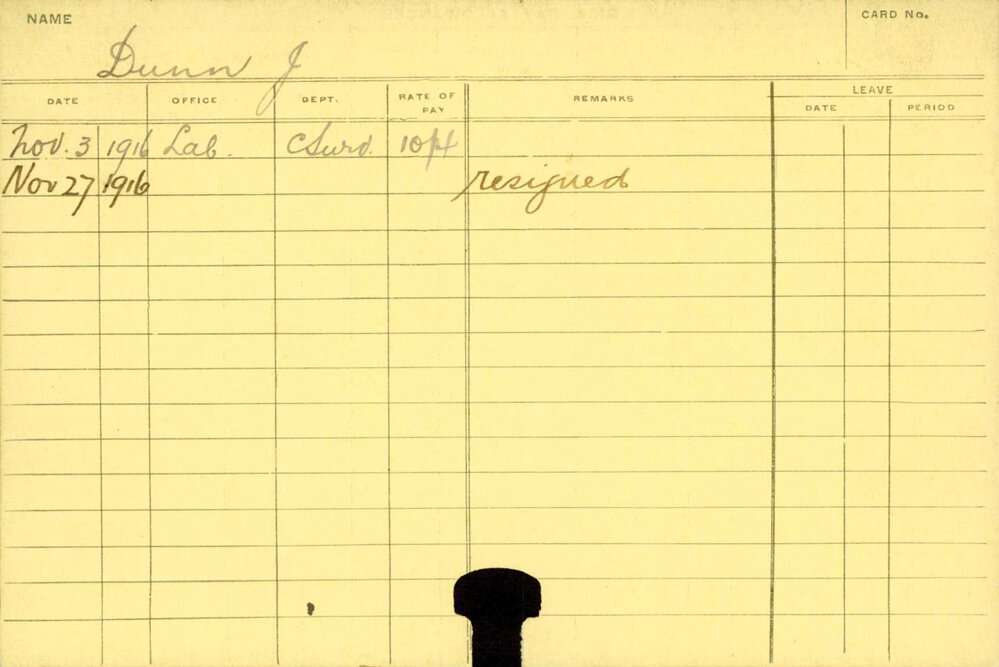 NAME
CARD No.
Dunn J
DATE OFFICE DEPT. RATE OF PAY REMARKS LEAVE
DATE PERIOD
Nov. 3 1916 Lab. C Surv. 10/4
Nov 27 1916 resigned